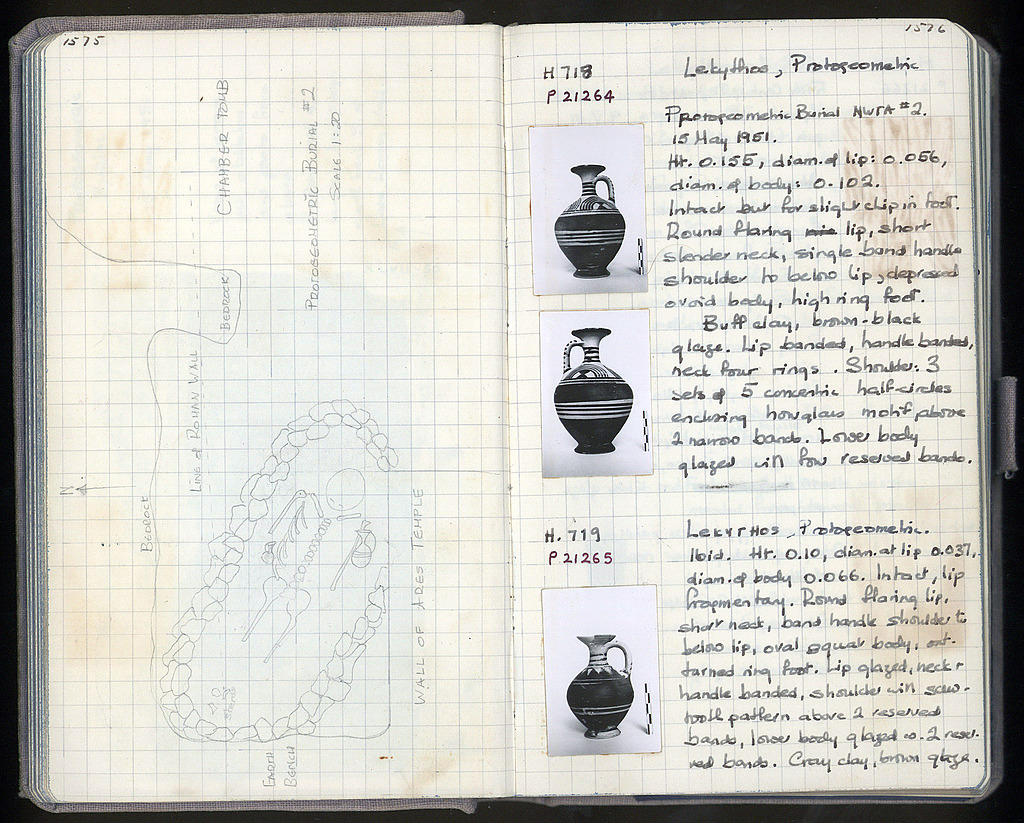 1575
CHAMBER TOMB
PROTOGEOMETRIC BURIAL #2
SCALE 1:20
BEDROCK
LINE of ROMAN WALL
N
BEDROCK
WALL OF ARES TEMPLE
EARTH
BENCH
1576
H 718
P 21264
Lekythos, Protogeometric
Protogeometric Burial NWTA #2.
15 May 1951.
Ht. 0.155, diam. of lip: 0.056,
diam. of body: 0.102.
Intact but for slight chip in foot.
Round flaring lip, short
slender neck, single band handle
shoulder to below lip, depressed
ovoid body, high ring foot.
Buff clay, brown-black
glaze. Lip banded, handle banded,
neck four rings. Shoulder: 3
sets of 5 concentric half-circles
enclosing hourglass motif, above
2 narrow bands. Lower body
glazed with four reserved bands.
H. 719
P 21265
LEKYTHOS, Protogeometric.
Ibid. Ht. 0.10, diam. at lip 0.037,
diam. of body 0.066. Intact, lip
fragmentary. Round flaring lip,
short neck, band handle shoulder to
below lip, oval squat body, out-
turned ring foot. Lip glazed, neck +
handle banded, shoulder with saw-
tooth pattern above 2 reserved
bands, lower body glazed w. 2 reser-
ved bands. Gray clay, brown glaze.